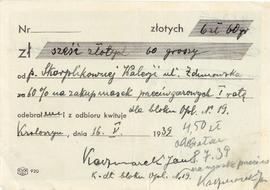 Nr złotych 6 zł 60 gr
zł sześć złotych 60 groszy
od p. Skorplikowej Walerji ul. Zdunowska
za 60% na zakup masek przeciwgazowych I ratę
odebrał i z odbioru kwituje dla bloku Opl. N. 19.
Krotoszyn, dnia 16. V. 1939
4,50 zł
8.7.39
Kaczmarek Jan
na maskę
Kaczmarek Jan
K-dt bloku Opl. N. 19.
920